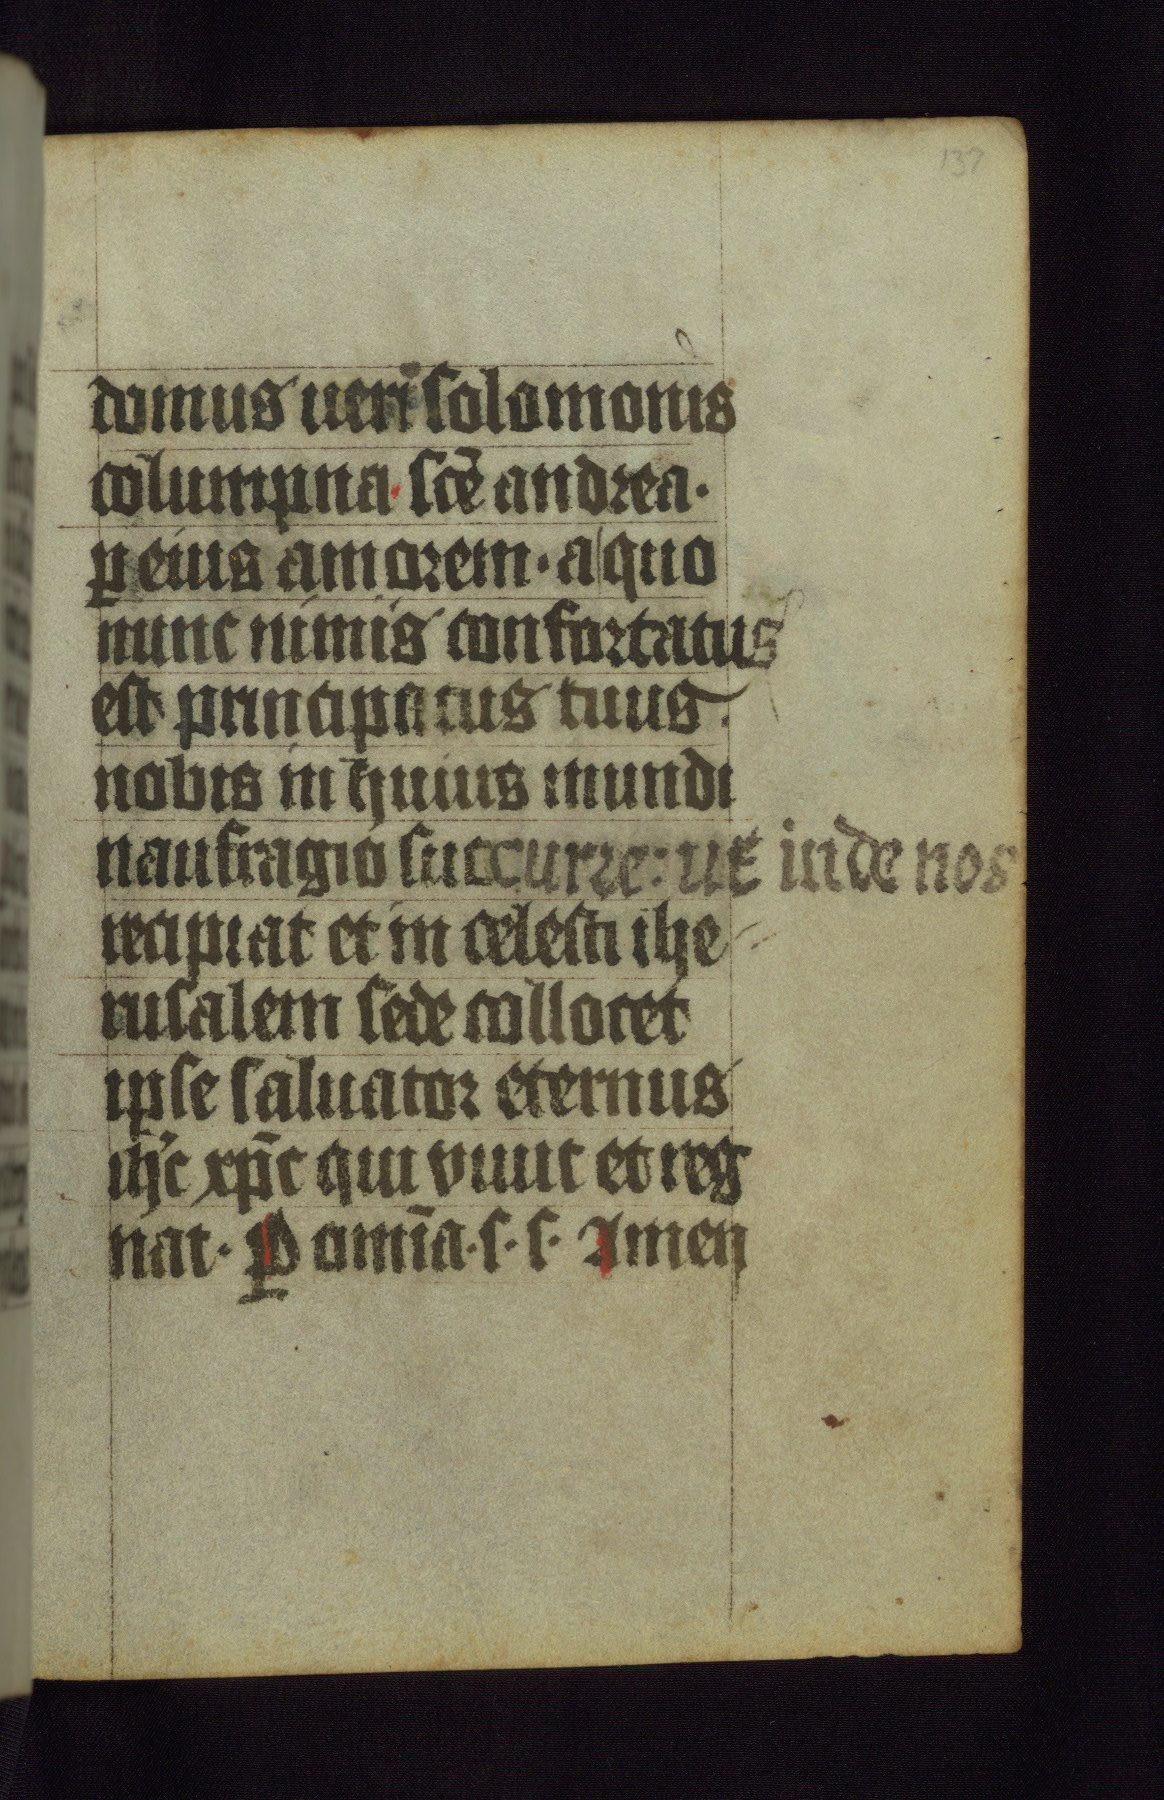 137
domus ueri solomonis
columpna. sce̅ andrea.
ꝑ eius amorem. a quo
nunc nimis confortatus
est principatus tuus.
nobis in huius mundi
naufragio succurre: ut inde nos
recipiat et in celesti ihe
rusalem sede collocet
ipse saluator eternus
ih̅c xp̅c qui viuit et reg
nat. Ꝑ omi̅a. s. s. Amen